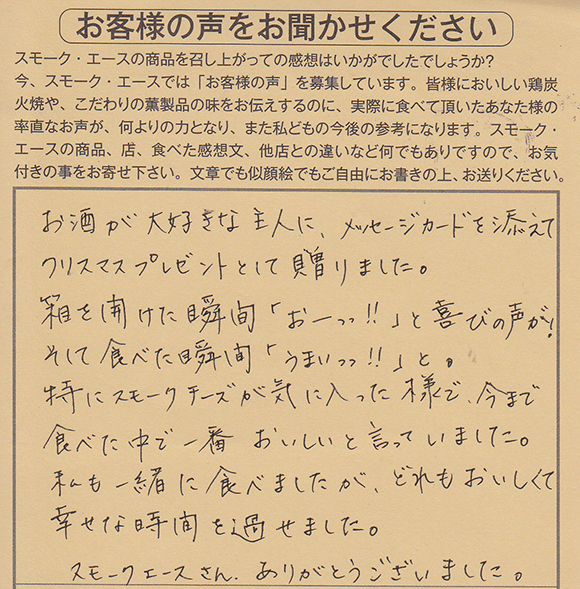 お客様の声をお聞かせください
スモーク・エースの商品を召し上がっての感想はいかがでしたでしょうか?
今、スモーク・エースでは「お客様の声」を募集しています。皆様においしい鶏炭
火焼や、こだわりの薫製品の味をお伝えするのに、実際に食べて頂いたあなた様の
率直なお声が、何よりの力となり、また私どもの今後の参考になります。スモーク・
エースの商品、店、食べた感想文、他店との違いなど何でもありですので、お気
付きの事をお寄せ下さい。文章でも似顔絵でもご自由にお書きの上、お送りください。
お酒が大好きな主人に、メッセージカードを添えて
クリスマスプレゼントとして贈りました。
箱を開けた瞬間「おーっっ!!」と喜びの声が!
そして食べた瞬間「うまいっっ!!」と。
特にスモークチーズが気に入った様で、今まで
食べた中で一番おいしいと言っていました。
私も一緒に食べましたが、どれもおいしくて
幸せな時間を過せました。
スモークエースさん、ありがとうございました。